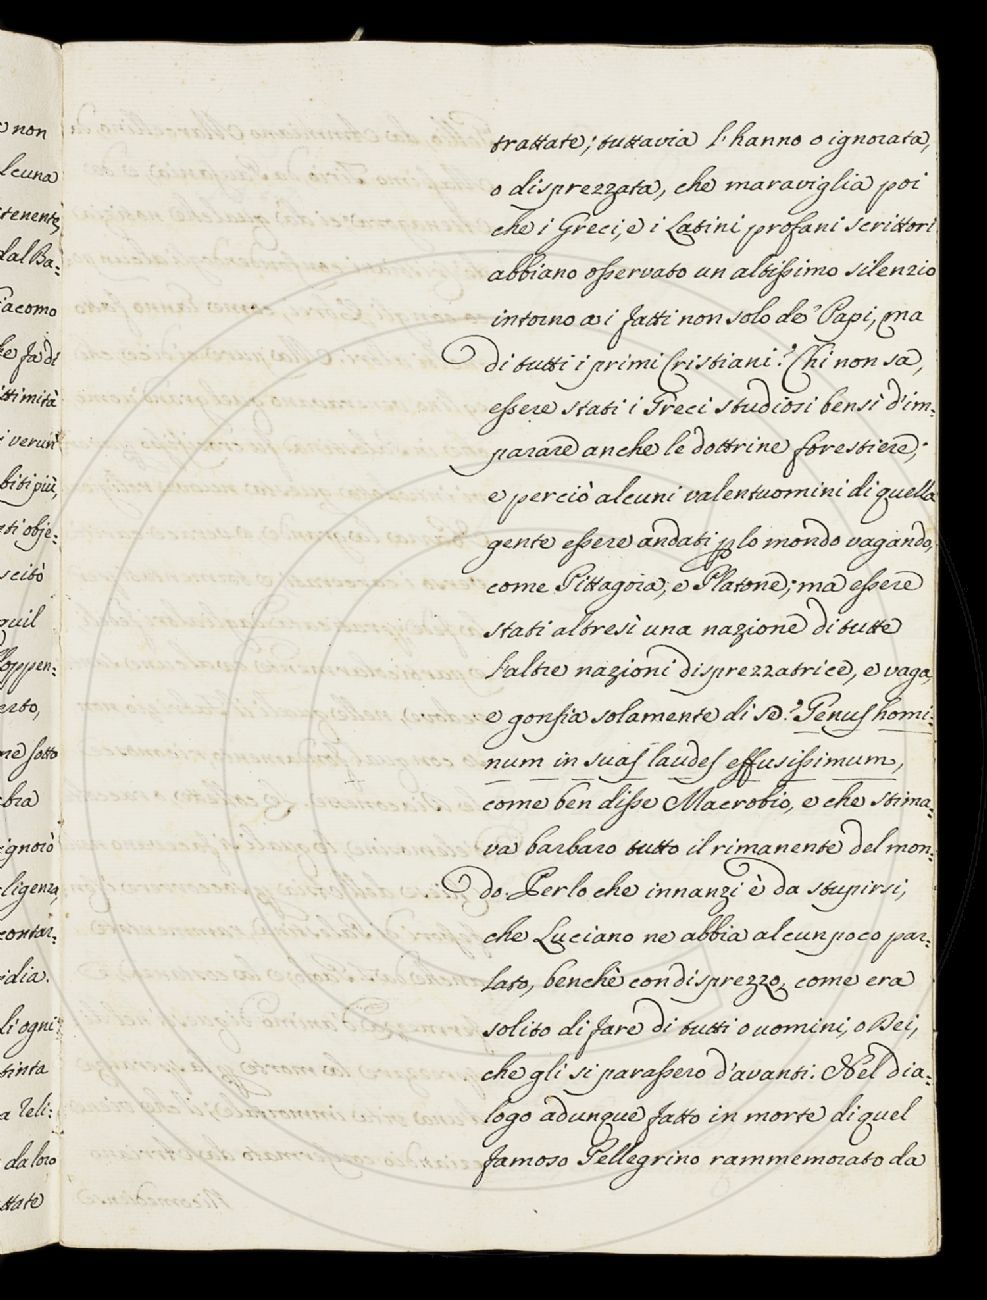 e non
lcuna
tenente
dal Ba=
iacomo
he fa di
ittimità
i verun
biti più,
sti obje=
scitò
Poppen=
erto,
me sotto
ebra
ignorò
ligenza,
contar=
idia.
di ogni
tinta
a Reli=
da loro
ttate
trattate; tuttavia l'hanno o ignorata,
o disprezzata, che maraviglia poi
che i Greci, e i Latini profani scrittori
abbiano osservato un altissimo silenzio
intorno a i fatti non solo de' Papi, ma
di tutti i primi Cristiani? Chi non sa,
essere stati i Greci studiosi bensì d'im=
parare anche le dottrine forestiere;
e perciò alcuni valentuomini di quella
gente essere andati p lo mondo vagando,
come Pittagora, e Platone; ma essere
stati altresì una nazione di tutte
l'altre nazioni disprezzatrice, e vaga,
e gonfia solamente di se? Genus homi=
num in suas laudes effusissimum,
come ben disse Macrobio, e che stima=
va barbaro tutto il rimanente del mon=
do. Per lo che innanzi è da stupirsi,
che Luciano ne abbia alcun poco par=
lato, benchè con disprezzo, come era
solito di fare di tutti o uomini, o Dei,
che gli si parassero d'avanti. Nel dia=
logo adunque fatto in morte di quel
famoso Pellegrino rammemorato da